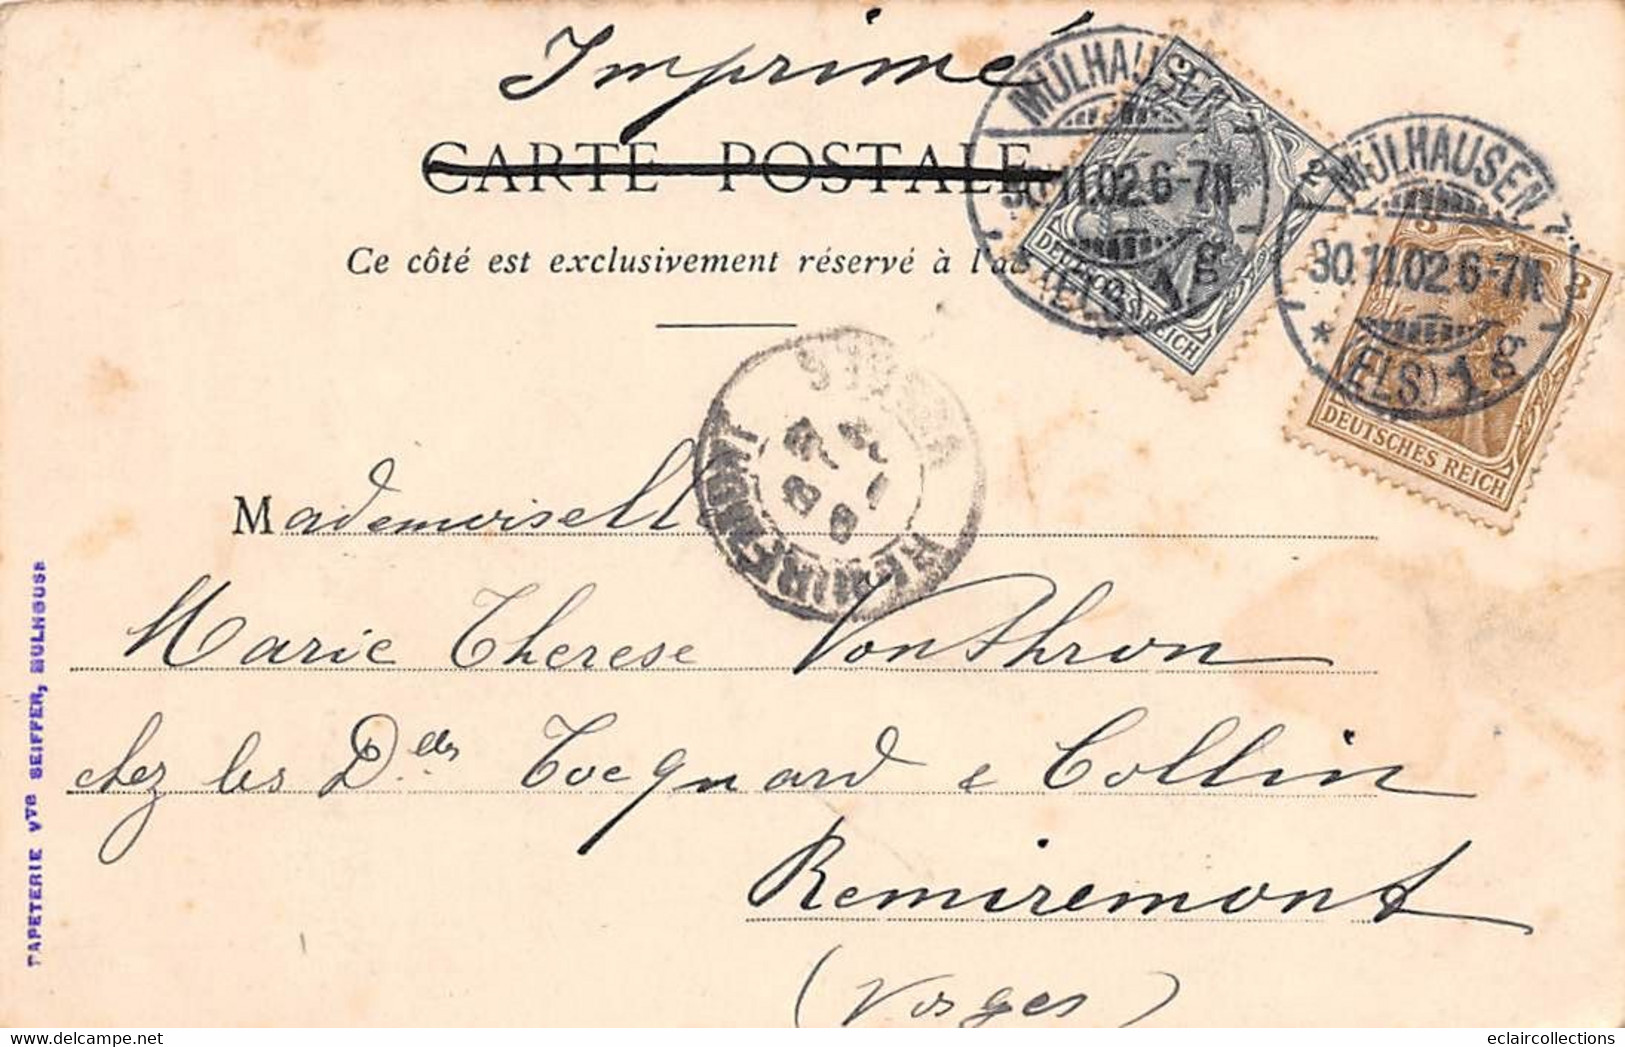 Imprimé
CARTE POSTALE
Ce côté est exclusivement réservé à l'ad
MÜLHAUSEN
30.11.02.6-7N
(ELS) 1g
2
DEUTSCHES REICH
MÜLHAUSEN
30.11.02.6-7N
* (ELS) 1g
3 3
DEUTSCHES REICH
REMIREMONT
VOSGES
Mademoiselle
Marie Therese Vonthron
chez les Delles Tocquard & Collin
Remiremont
(Vosges)
PAPETERIE Vve SEIFFER, MULHOUSE
eclaircollections